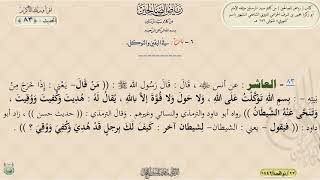 رياض الصالحين
٦ - باب : في اليقين والتوكل .
الحديث ( ٨٣ )
٨٣ - العاشر : عن أنس ﵁ ، قال : قال رسول الله ﷺ : (( من قال - يعني : إذا خرج من
بيته - : بسم الله توكلت على الله ، ولا حول ولا قوة إلا بالله ، يقال له : هديت وكفيت ووقيت ،
وتنحى عنه الشيطان )) رواه أبو داود والترمذي والنسائي وغيرهم . وقال الترمذي : (( حديث حسن )) ، زاد أبو
داود : (( فيقول - يعني : الشيطان - لشيطان آخر : كيف لك برجل قد هدي وكفي ووقي ؟ )) .